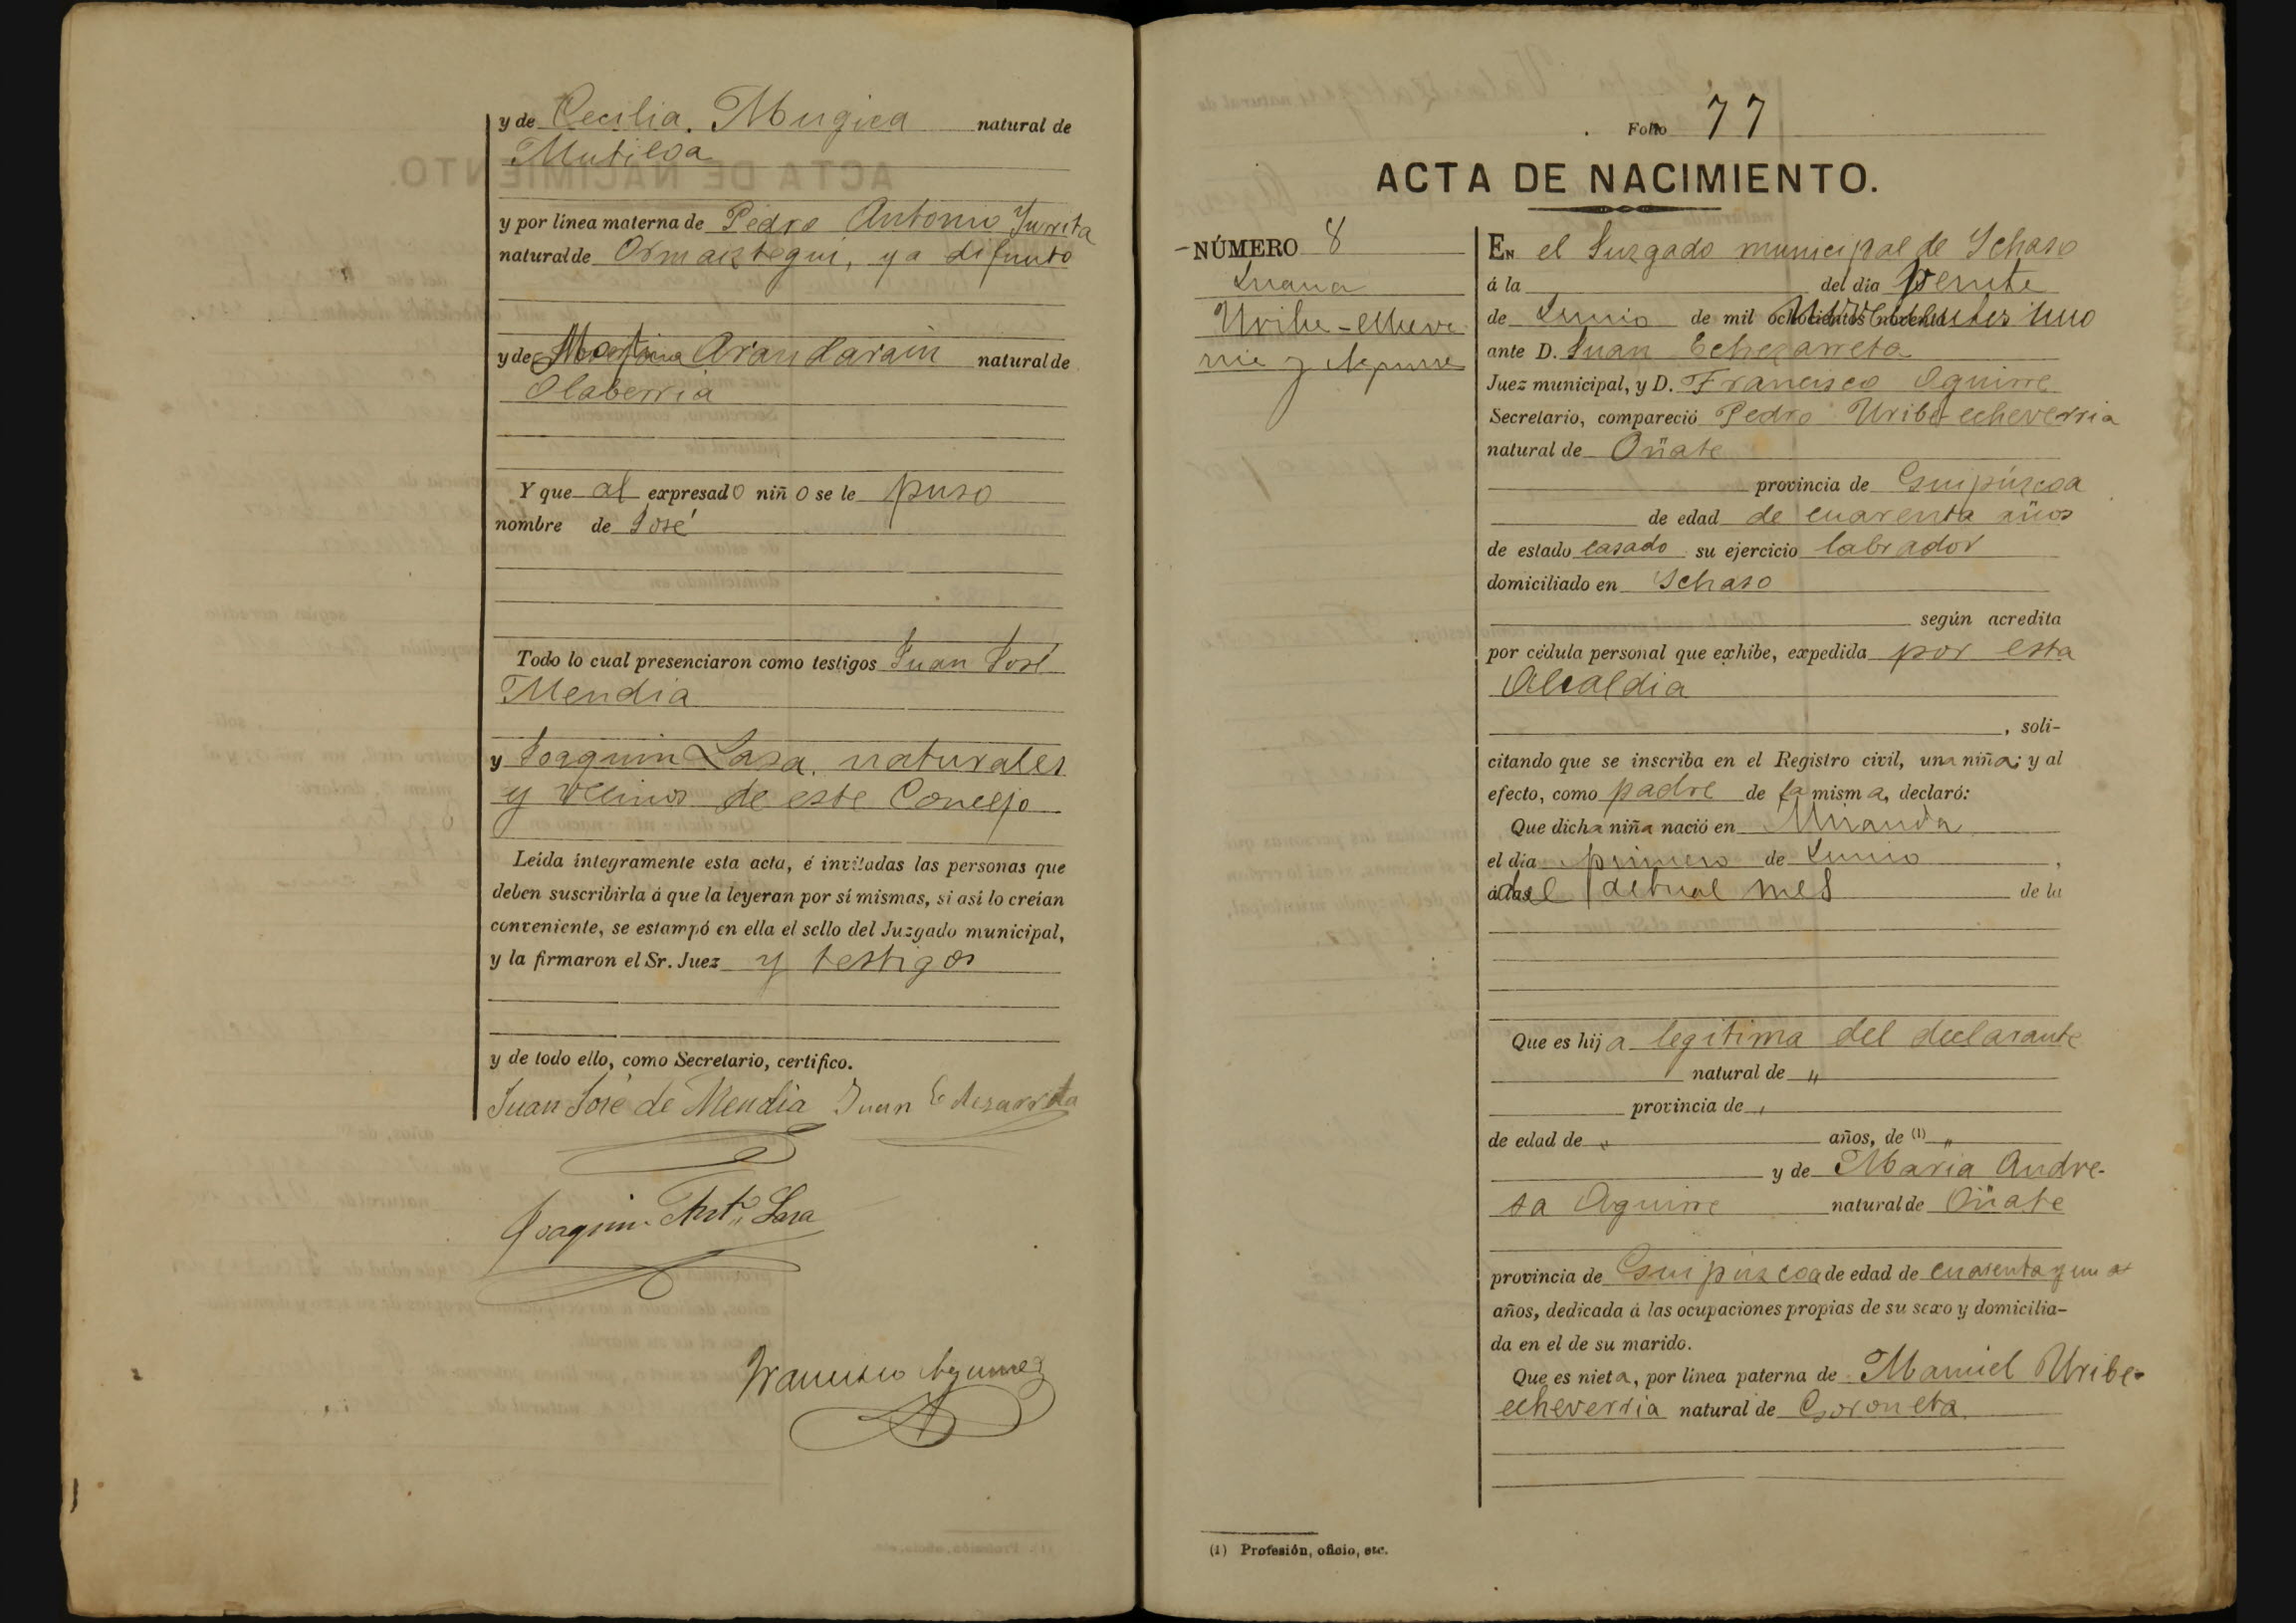 y de Cecilia Mugica natural de
Mutiloa
y por línea materna de Pedro Antonio Iurrita
natural de Ormaiztegui, ya difunto
y de Martina Arandarain natural de
Olaberria
Y que al expresado niño se le puso
nombre de José
Todo lo cual presenciaron como testigos Juan José
Mendia
y Joaquin Lasa, naturales
y vecinos de este Concejo
Leída íntegramente esta acta, é invitadas las personas que
deben suscribirla á que la leyeran por sí mismas, si así lo creían
conveniente, se estampó en ella el sello del Juzgado municipal,
y la firmaron el Sr. Juez y testigos
y de todo ello, como Secretario, certifico.
Juan José de Mendia Juan Echezarreta
Joaquin Ant.º Lasa
Francisco Aguirre
Folio 77
ACTA DE NACIMIENTO.
NÚMERO 8
Juana
Uribe-echever
ria y Aguirre
EN el Juzgado municipal de Ichaso
á la del día
de Junio de mil ochocientos noventa uno
ante D. Juan Echezarreta
Juez municipal, y D. Francisco Aguirre
Secretario, compareció Pedro Uribe-echeverria
natural de Oñate
provincia de Guipúzcoa
de edad de cuarenta años
de estado casado su ejercicio labrador
domiciliado en Ichaso
según acredita
por cédula personal que exhibe, expedida por esta
Alcaldia
, soli-
citando que se inscriba en el Registro civil, una niña; y al
efecto, como padre de la misma, declaró:
Que dicha niña nació en Miranda
el día primero de Junio ,
á las del actual mes de la
Que es hija legitima del declarante
natural de "
provincia de "
de edad de " años, de (1) "
y de Maria Andre-
sa Aguirre natural de Oñate
provincia de Guipúzcoa de edad de cuarenta y un
años, dedicada á las ocupaciones propias de su sexo y domicilia-
da en el de su marido.
Que es nieta, por línea paterna de Manuel Uribe-
echeverria natural de Goroneta
(1) Profesión, oficio, etc.